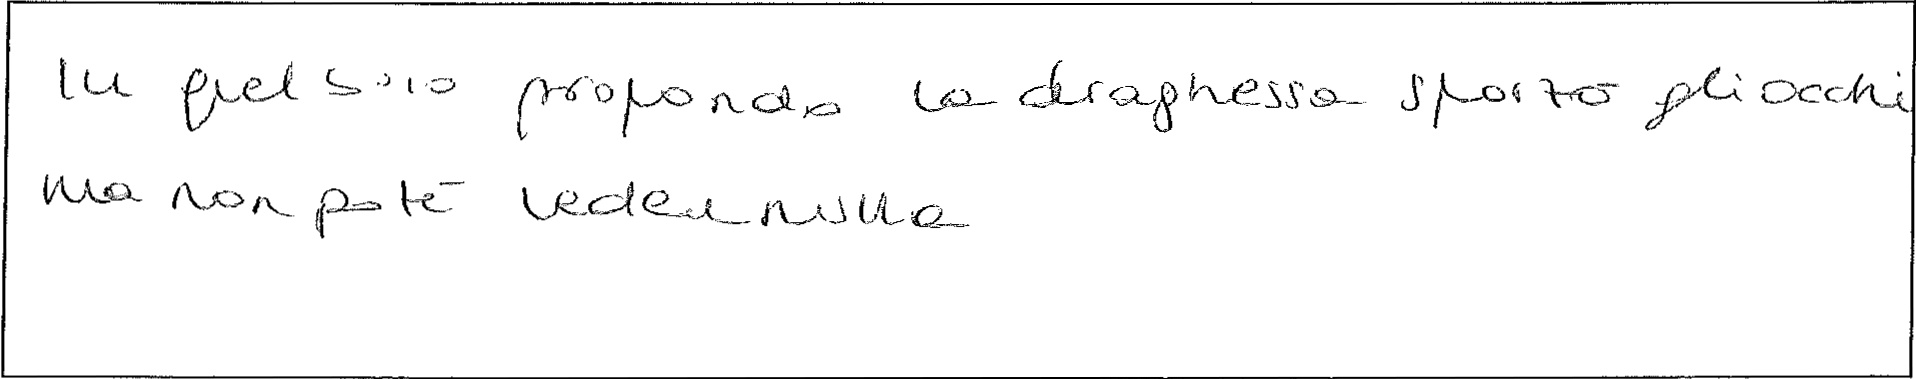 In quel buio profondo la draghessa sforzò gli occhi
ma non poté veder nulla